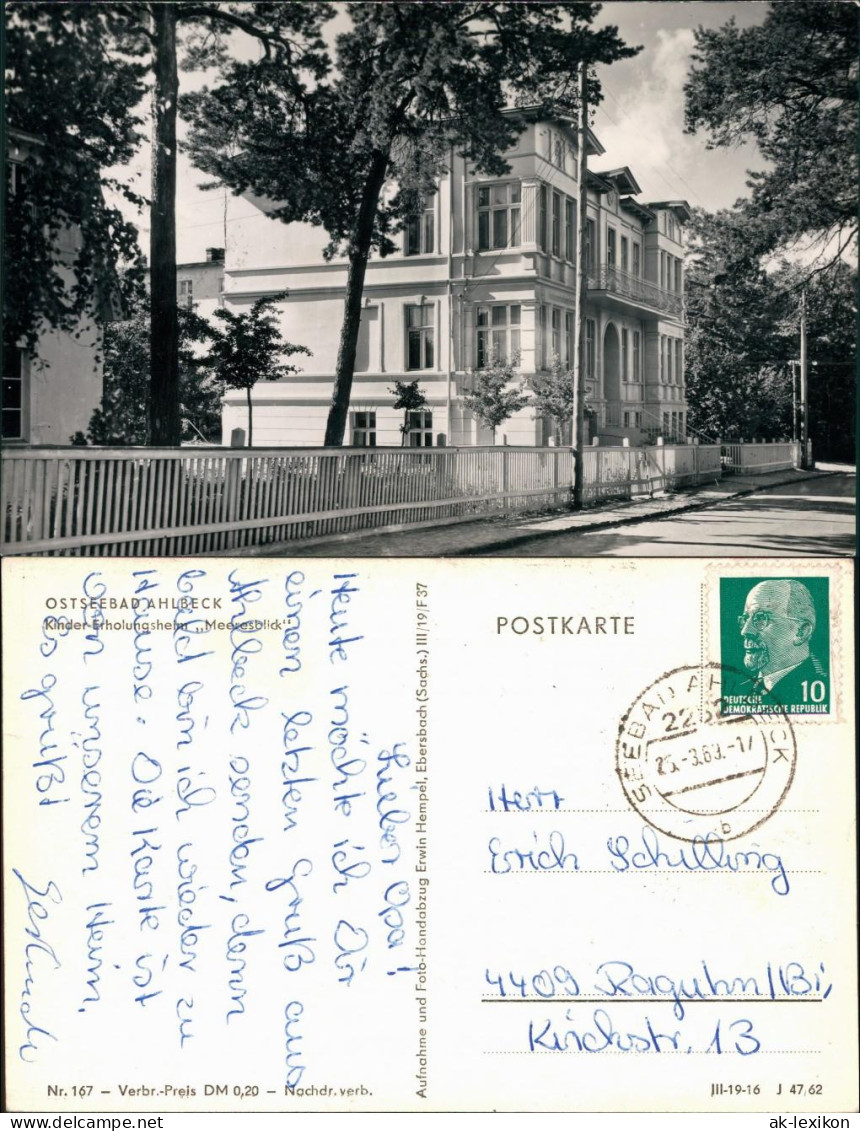 OSTSEEBAD AHLBECK
Kinder-Erholungsheim „Meeresblick"
Lieber Opa!
Heute möchte ich Dir
einen letzten Gruß aus
Ahlbeck senden, denn
bald bin ich wieder zu
Hause. Die Karte ist
von unserem Heim.
Es grüßt
Nr. 167 – Verbr.-Preis DM 0,20 – Nachdr. verb.
Aufnahme und Foto-Handabzug Erwin Hempel, Ebersbach (Sachs.) III/19/F 37
POSTKARTE
10
DEUTSCHE
DEMOKRATISCHE REPUBLIK
SEEBAD AHLBECK
2252
b
Herr
Erich Schilling
4409 Raguhn/Bi,
Kirchstr. 13
III-19-16 J 47/62
www.ak-ansichtskarten.de
ak-lexikon